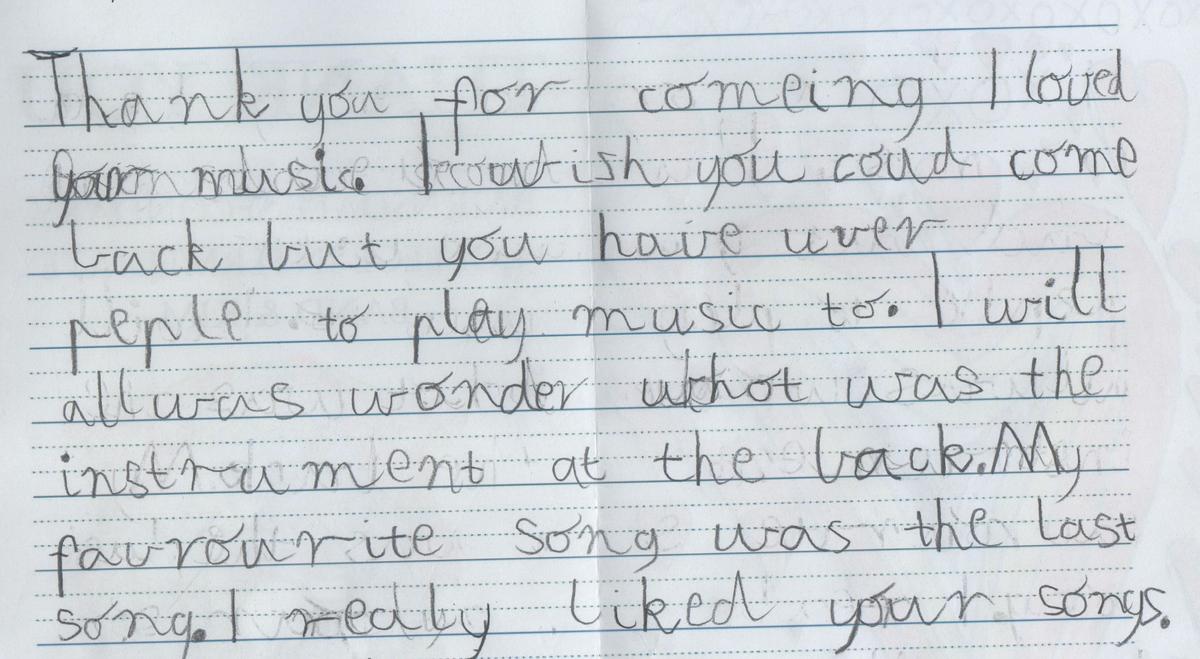 Thank you for comeing I loved
your music. I wish you coud come
back but you have uver
peple to play music to. I will
allwas wonder whot was the
instrument at the back. My
favrourite song was the last
song. I really liked your songs.